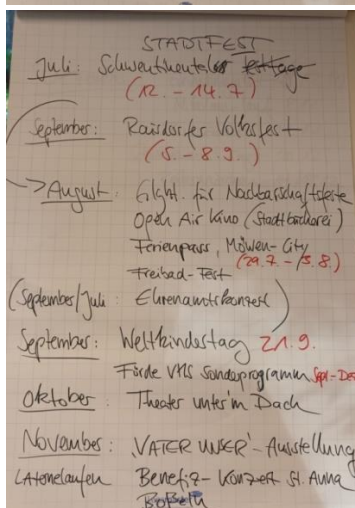 STADTFEST
Juli: Schwentinentaler Festtage
(12. - 14.7)
September: Raisdorfer Volksfest
(5. - 8.9.)
-> August: für Nachbarschaftsfeste
Open Air Kino (Stadtbücherei)
Ferienpass, Möwen-City
(29.7. - 8.)
Freibad-Fest
(September/Juli: Ehrenamtskonzert)
September: Weltkindestag 21.9.
Förde VHS Sonderprogramm Sept-Dez
Oktober: Theater unter'm Dach
November: 'VATER UNSER'-Ausstellung
LAternelaufen Benefiz-Konzert St. Anna